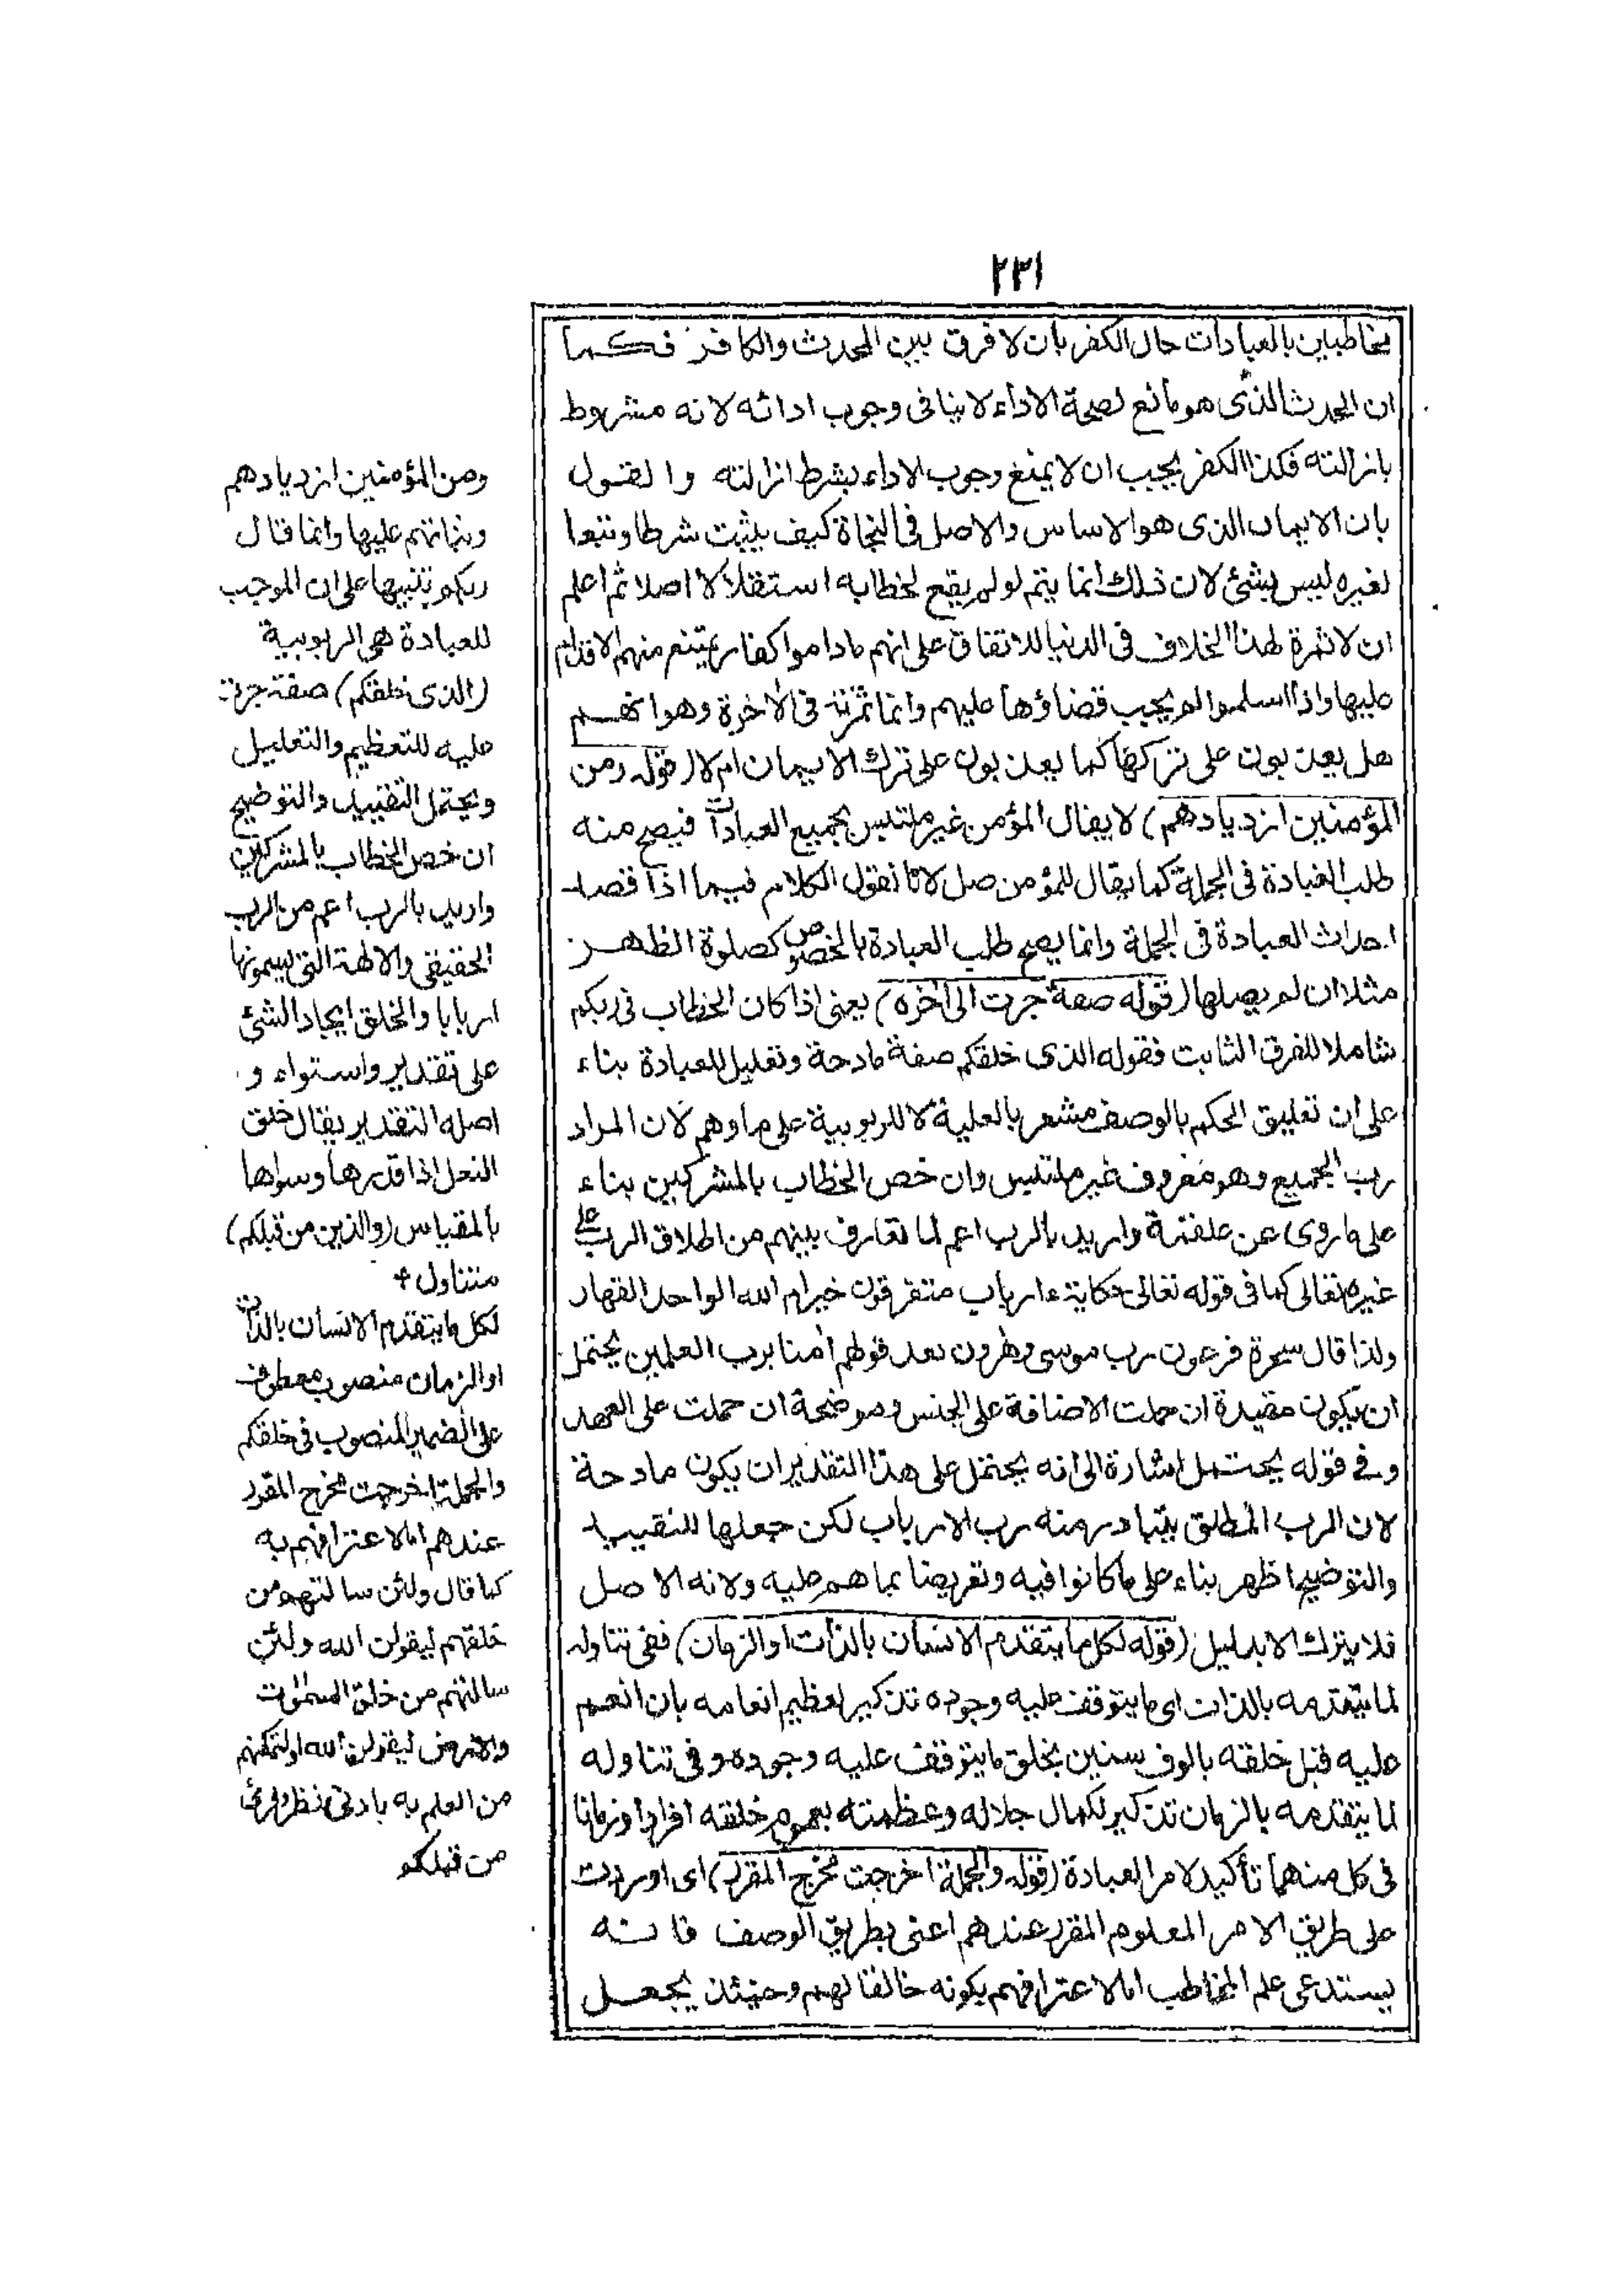 ٢٣١
مخاطبين بالعبادات حال الكفر بان لا فرق بين المحدث والكافر فكما
ان الحدث الذى هو مانع لصحة الاداء لا ينافى وجوب ادائه لانه مشروط
بازالته فكذا الكفر يجب ان لا يمنع وجوب الاداء بشرط ازالته والقول
بان الايمان الذى هو الاساس والاصل فى النجاة كيف يثبت شرطا وتبعا
لغيره ليس بشئ لان ذلك انما يتم لو لم يقع الخطاب به استقلالا اصلا ثم اعلم
ان لا ثمرة لهذا الخلاف فى الدنيا للاتفاق على انهم ماداموا كفارا يمتنع منهم الاقدام
عليها واذا اسلموا لم يجب قضاؤها عليهم وانما ثمرته فى الأخرة وهو انهم
هل يعذبون على تركها كما يعذبون على ترك الايمان ام لا (قوله ومن
المؤمنين ازديادهم) لا يقال المؤمن غير ملتبس بجميع العبادات فيصح منه
طلب العبادة فى الجملة كما يقال للمؤمن صل لانا نقول الكلام فيما اذا قصد
احداث العبادة فى الجملة وانما يصح طلب العبادة بالخصوص كصلوة الظهر
مثلا ان لم يصلها (قوله صفة جرت الى أخره) يعنى اذا كان الخطاب فى ربكم
شاملا للفرق الثابت فقوله الذى خلقكم صفة مادحة وتعليل للعبادة بناء
على ان تعليق الحكم بالوصف مشعر بالعلية لا للربوبية على ما وهم لان المراد
رب الجميع وهو معروف غير ملتبس وان خص الخطاب بالمشركين بناء
على ما روى عن علقمة واريد بالرب اعم لما تعارف بينهم من اطلاق الرب على
غيره تعالى كما فى قوله تعالى حكاية ءارباب متفرقون خير ام الله الواحد القهار
ولذا قال سحرة فرعون رب موسى وهرون بعد قولهم أمنا برب العلمين يحتمل
ان يكون مقيدة ان حملت الاضافة على الجنس وموضحة ان حملت على العهد
وفى قوله يحتمل اشارة الى انه يحتمل على هذا التقدير ان يكون مادحة
لان الرب المطلق يتبادر منه رب الارباب لكن جعلها للتقييد
والتوضيح اظهر بناء على ما كانوا فيه وتعريضا بما هم عليه ولانه الاصل
فلا يترك الا بدليل (قوله لكل ما يتقدم الانسان بالذات او الزمان) ففى تناوله
لما يتقدمه بالذات اى ما يتوقف عليه وجوده تذكير لعظيم انعامه بان انعم
عليه قبل خلقه بالوف سنين بخلق ما يتوقف عليه وجوده وفى تناوله
لما يتقدمه بالزمان تذكير لكمال جلاله وعظمته بعموم خلقه افرادا وزمانا
فى كل منهما تأكيد لامر العبادة (قوله والجملة اخرجت مخرج المقرر) اى اوردت
على طريق الامر المعلوم المقرر عندهم اعنى بطريق الوصف فانه
يستدعى علم المخاطب اما لاعترافهم بكونه خالقا لهم وحينئذ يجعل
ومن المؤمنين ازديادهم
وثباتهم عليها وانما قال
ربكم تنبيها على ان الموجب
للعبادة هى الربوبية
(الذى خلقكم) صفة جرت
عليه للتعظيم والتعليل
ويحتمل التقييد والتوضيح
ان خص الخطاب بالمشركين
واريد بالرب اعم من الرب
الحقيقى والالهة التى يسمونها
اربابا والخلق ايجاد الشئ
على تقدير واستواء و
اصله التقدير يقال خلق
النعل اذا قدرها وسواها
بالمقياس (والذين من قبلكم)
متناول
لكل ما يتقدم الانسان بالذات
او الزمان منصوب معطوف
على الضمير المنصوب فى خلقكم
والجملة اخرجت مخرج المقرر
عندهم اما لاعترافهم به
كما قال ولئن سالتهم من
خلقهم ليقولن الله ولئن
سالتهم من خلق السموات
والارض ليقولن الله او لتمكنهم
من العلم به بادنى نظر وقرئ
من قبلكم